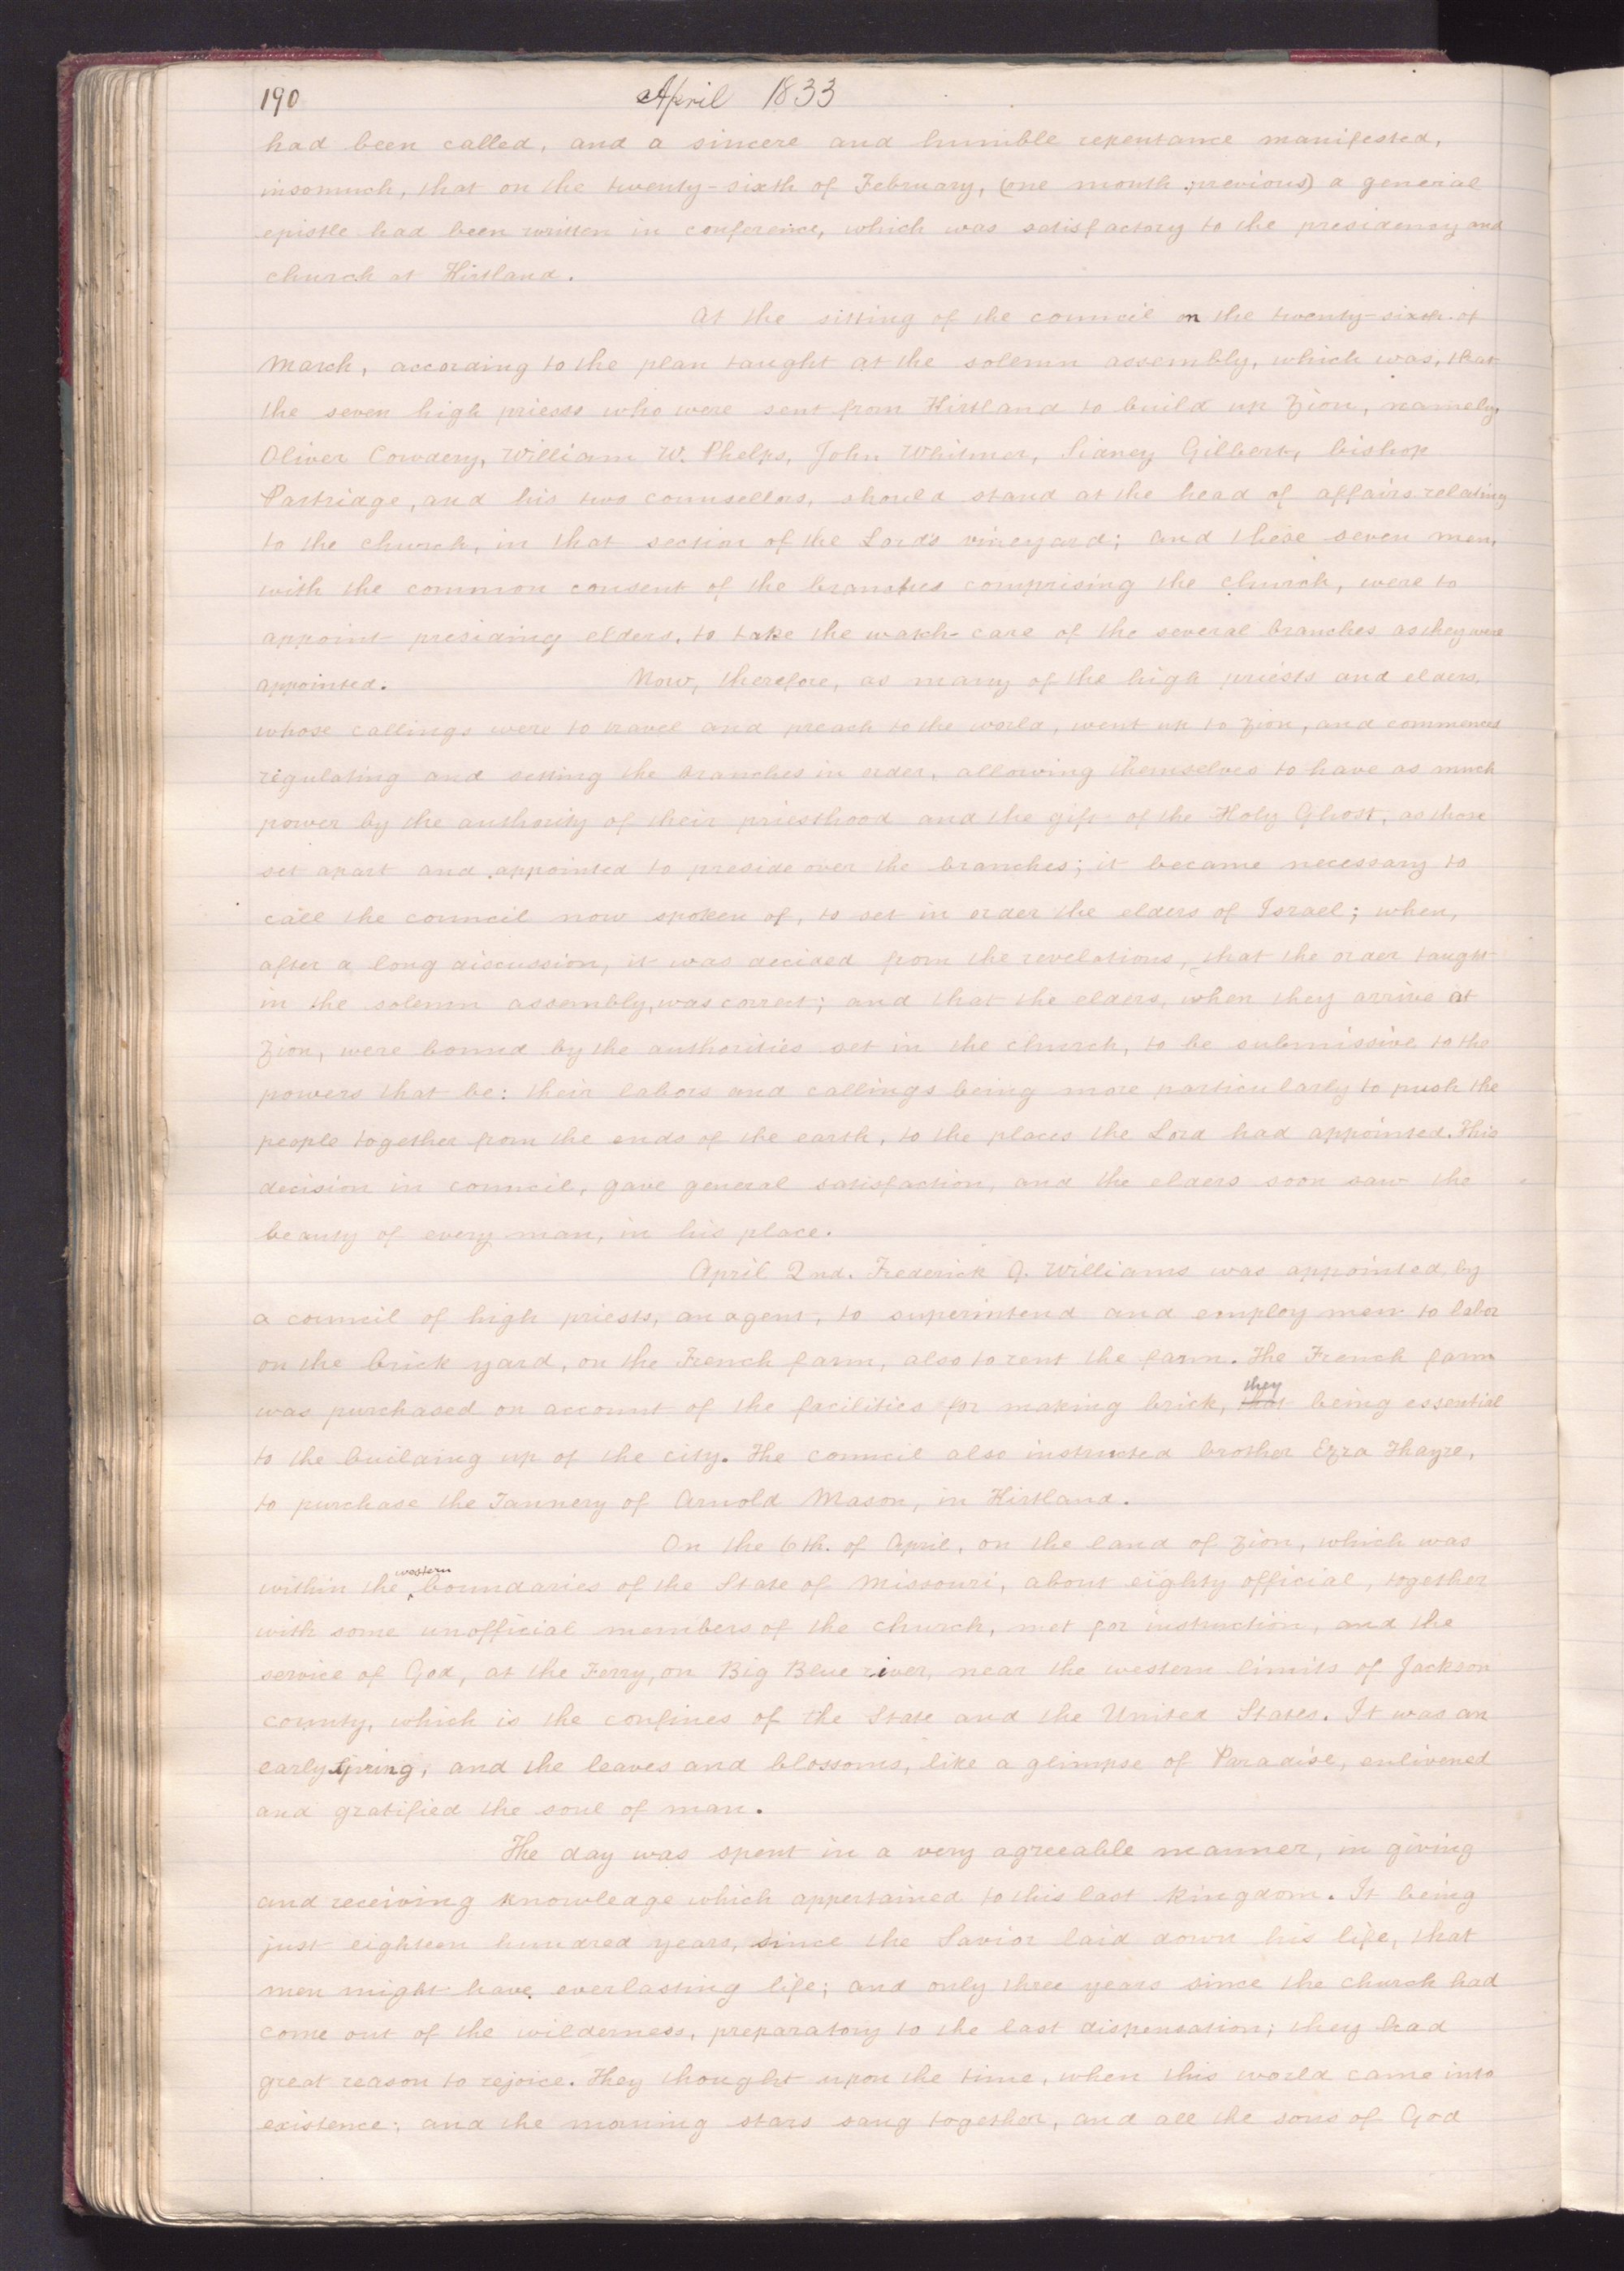 190 April 1833
had been called, and a sincere and humble repentance manifested,
insomuch, that on the twenty-sixth of February, (one month previous) a general
epistle had been written in conference, which was satisfactory to the presidency and
church at Kirtland.
At the sitting of the council on the twenty-sixth of
March, according to the plan taught at the solemn assembly, which was, that
the seven high priests who were sent from Kirtland to build up Zion, namely,
Oliver Cowdery, William W. Phelps, John Whitmer, Sidney Gilbert, bishop
Partridge, and his two counsellors, should stand at the head of affairs relating
to the church, in that section of the Lord's vineyard; and these seven men,
with the common consent of the branches comprising the church, were to
appoint presiding elders, to take the watch-care of the several branches as they were
appointed. Now, therefore, as many of the high priests and elders,
whose callings were to travel and preach to the world, went up to Zion, and commenced
regulating and setting the branches in order, allowing themselves to have as much
power by the authority of their priesthood and the gift of the Holy Ghost, as those
set apart and appointed to preside over the branches; it became necessary to
call the council now spoken of, to set in order the elders of Israel; when,
after a long discussion, it was decided from the revelations, that the order taught
in the solemn assembly, was correct; and that the elders, when they arrive at
Zion, were bound by the authorities set in the church, to be submissive to the
powers that be: their labors and callings being more particularly to push the
people together from the ends of the earth, to the places the Lord had appointed. This
decision in council, gave general satisfaction, and the elders soon saw the
beauty of every man, in his place.
April 2nd. Frederick G. Williams was appointed, by
a council of high priests, an agent, to superintend and employ men to labor
on the brick yard, on the French farm, also to rent the farm. The French farm
they
was purchased on account of the facilities for making brick, that being essential
to the building up of the city. The council also instructed brother Ezra Thayre,
to purchase the Tannery of Arnold Mason, in Kirtland.
On the 6th. of April, on the land of Zion, which was
western
within the boundaries of the State of Missouri, about eighty official, together
with some unofficial members of the church, met for instruction, and the
service of God, at the Ferry, on Big Blue river, near the western limits of Jackson
county, which is the confines of the State and the United States. It was an
early spring, and the leaves and blossoms, like a glimpse of Paradise, enlivened
and gratified the soul of man.
The day was spent in a very agreeable manner, in giving
and receiving knowledge which appertained to this last kingdom. It being
just eighteen hundred years, since the Savior laid down his life, that
men might have everlasting life; and only three years since the church had
come out of the wilderness, preparatory to the last dispensation; they had
great reason to rejoice. They thought upon the time, when this world came into
existence; and the morning stars sang together, and all the sons of God